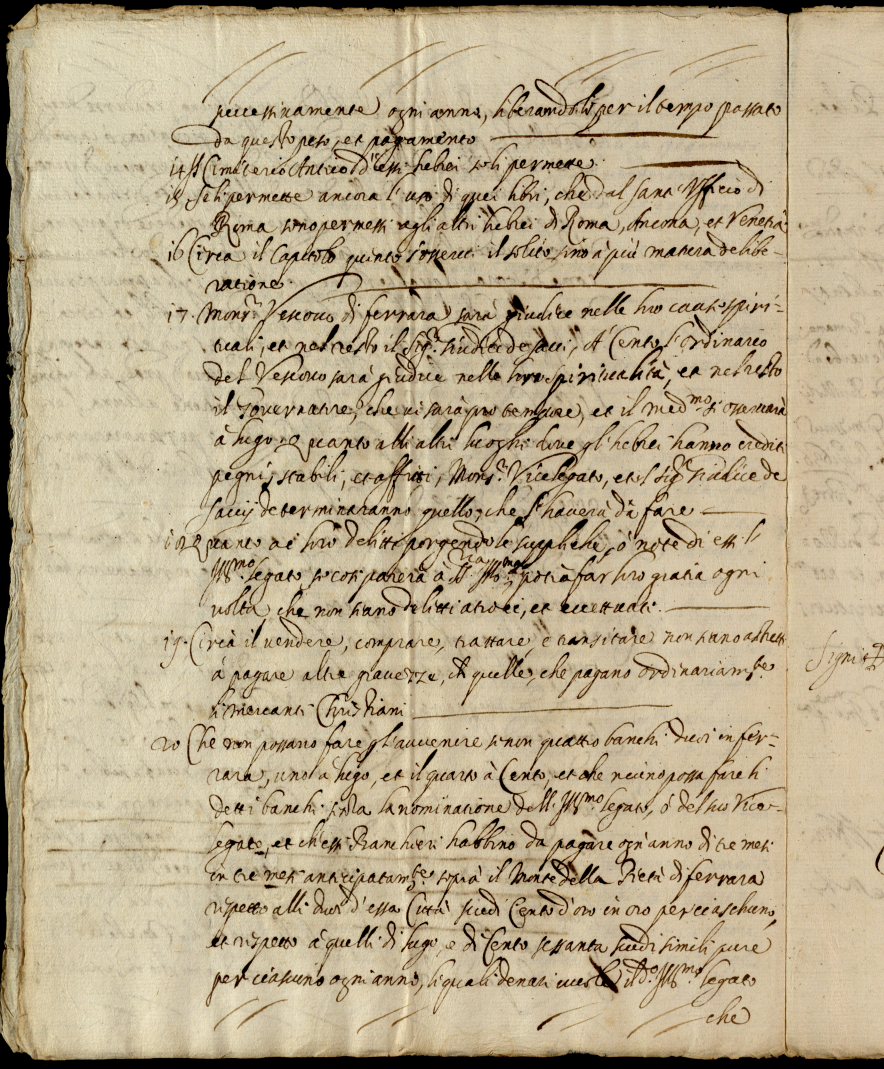 successivamente ogni anno, liberandoli per il tempo passato
da questo peso, et pagamento
14 Il Cimiterio Antico d'essi hebrei se li permette.
15 Se li permette ancora l'uso di quei libri, che dal sant'Ufficio di
Roma sono permessi agli altri hebrei di Roma, Ancona, et Venetia
16 Circa il Capitolo quinto s'osservi il solito sino à più matura delibe=
ratione.
17. Monsr. Vescovo di ferrara sarà giudice nelle loro cause spiri=
tuali, et nel resto il Sigr. Giudice de savij, A Cento l'ordinario
del Vescovo sarà giudice nelle loro spiritualità, et nel resto
il Governatore, che vi sarà pro tempore, et il medmo. si osservarà
à lugo, e quanto alli altri luoghi dove gl'hebrei hanno crediti
pegni, stabili, et affitti, Monsr. Vicelegato, et il sigr. Giudice de
savij determinaranno quello, che s'haverà da fare
18 Quanto à i loro delitti porgendole suppliche, ò note di essi l'
Illmo. legato se così parerà à S. S. Illma. potrà far loro gratia ogni
volta che non siano delitti atroci, et eccettuati.
19. Circa il vendere, comprare, trattare, e transitare non siano astretti
à pagare altre gravezze, che quelle, che pagano ordinariamte.
li mercanti Christiani
20 Che non possano fare per l'avvenire se non quattro banchi duoi in fer=
rara, uno à lugo, et il quarto à Cento, et che niuno possa fare li
detti banchi senza la nominatione dell'Illmo. legato, ò del suo Vice=
legato, et ch'essi Banchieri habbino da pagare ogn'anno di tre mesi
in tre mesi anticipatamte. sopra il Monte della Pietà di ferrara
rispetto alli duoi d'essa Città scudi Cento d'oro in oro per ciaschuno,
et rispetto à quelli di lugo, e di Cento sessanta scudi simili pure
per ciascuno ogni anno, li quali denari vuole il do. Illmo. legato
che